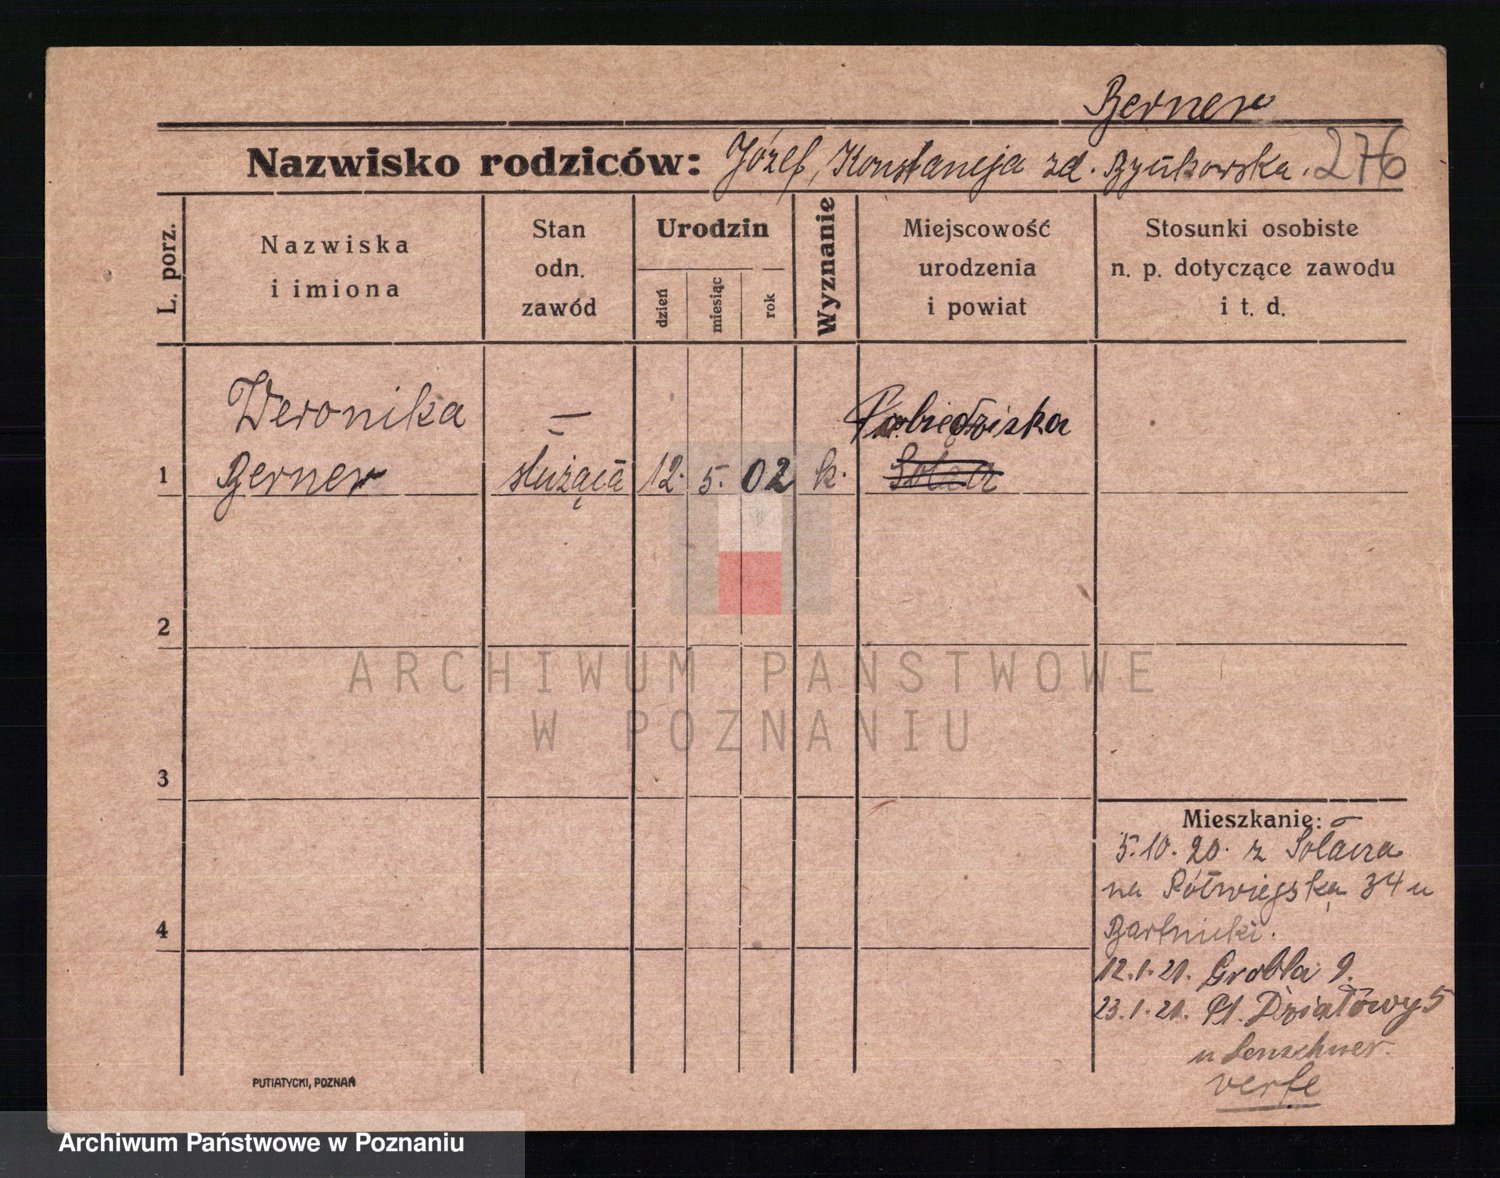 Berner
Nazwisko rodziców: Józef, Konstancja zd. 276
L. porz.
Nazwiska
i imiona
Stan
odn.
zawód
Urodzin
dzień
miesiąc
rok
Wyznanie
Miejscowość
urodzenia
i powiat
Stosunki osobiste
n. p. dotyczące zawodu
i t. d.
Weronika
— Pobiedziska
1 Berner służąca 12. 5. 02 k. Sołacz
2
ARCHIWUM PAŃSTWOWE
W POZNANIU
3
Mieszkanie:
5.10.20. z Sołacza
na Półwiejską 34 u
4 Bartnicki.
12.1.21. Grobla 9.
23.1.21. Pl. Działowy 5
u
verte
PUTIATYCKI, POZNAŃ
Archiwum Państwowe w Poznaniu